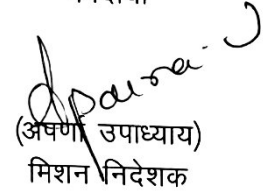 (अपर्णा उपाध्याय)
मिशन निदेशक